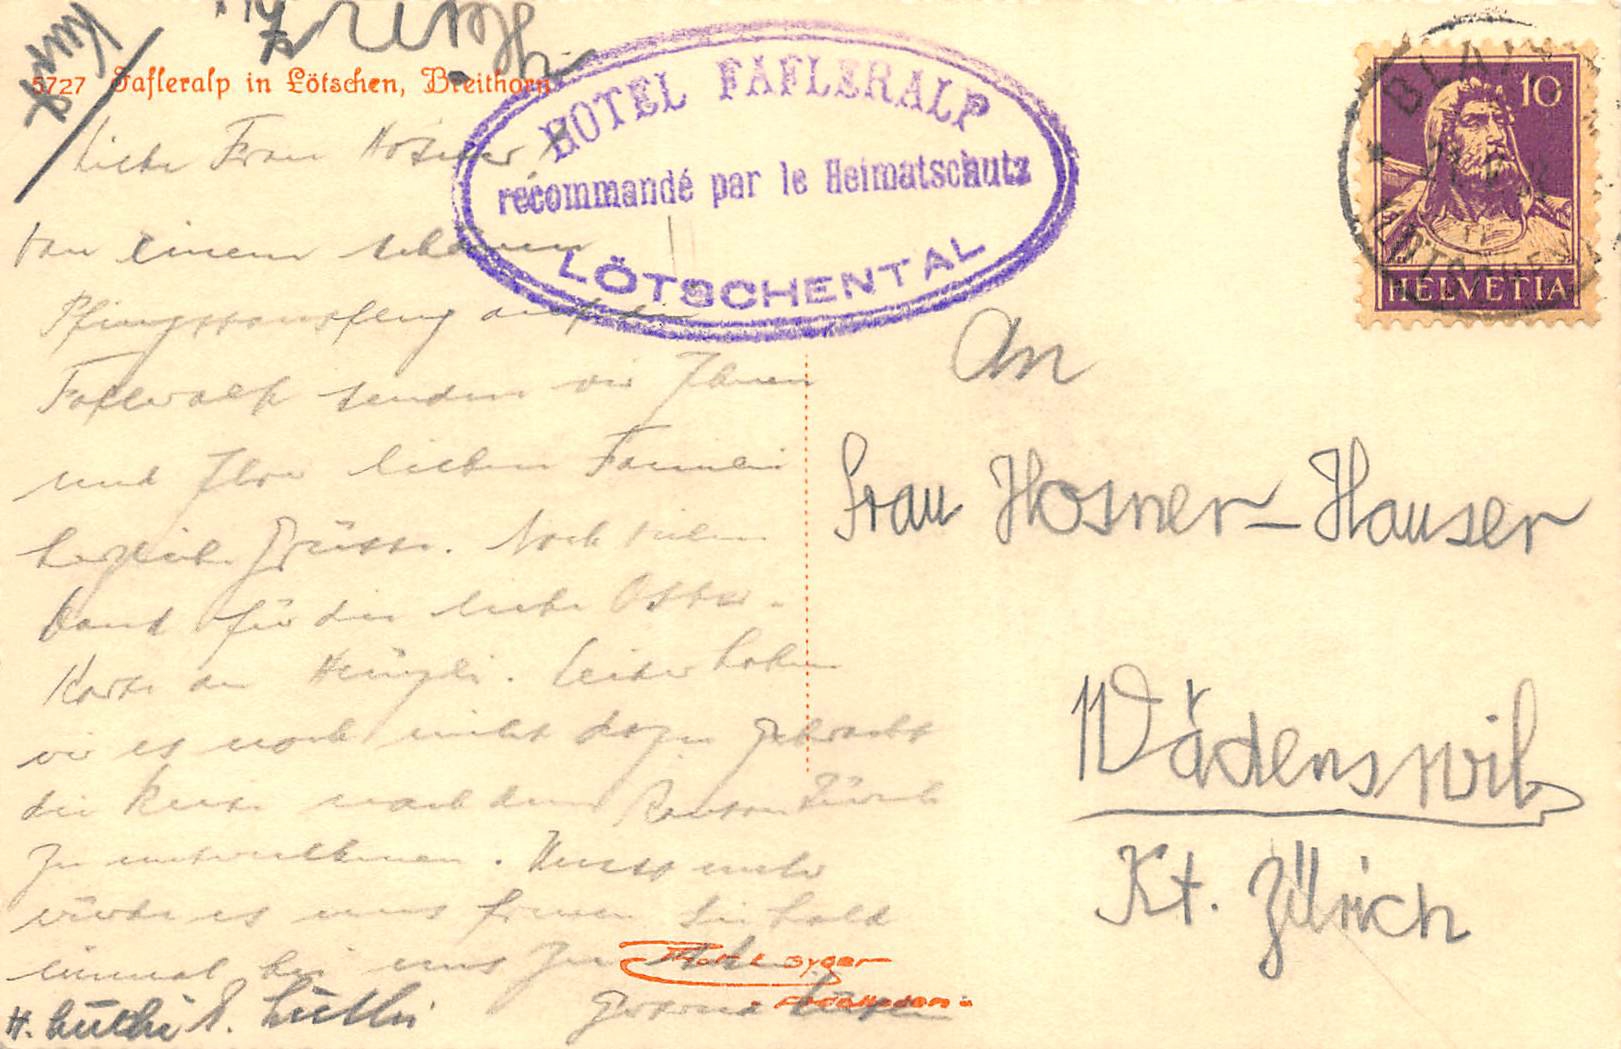 5727 Fafleralp in Lötschen, Breithorn
Kurt
HOTEL FAFLERALP
recommandé par le Heimatschutz
LÖTSCHENTAL
BLATTEN
10
HELVETIA
Liebe Frau Hosner
Von einem schönen
auf die
Fafleralp senden wir Ihnen
und Ihrer lieben Familie
herzliche Grüsse. Noch vielen
Dank für die liebe Oster-
Karte an. Leider haben
wir es noch nicht dazu gebracht
die Reise nach dem Kanton Zürich
zu unternehmen. mehr
würde es uns freuen Sie bald
einmal bei uns zu
H. Lüthi S. Lüthi
An
Frau Hosner-Hauser
Wädenswil
Kt. Zürich
Phot. E. Gyger
Adelboden